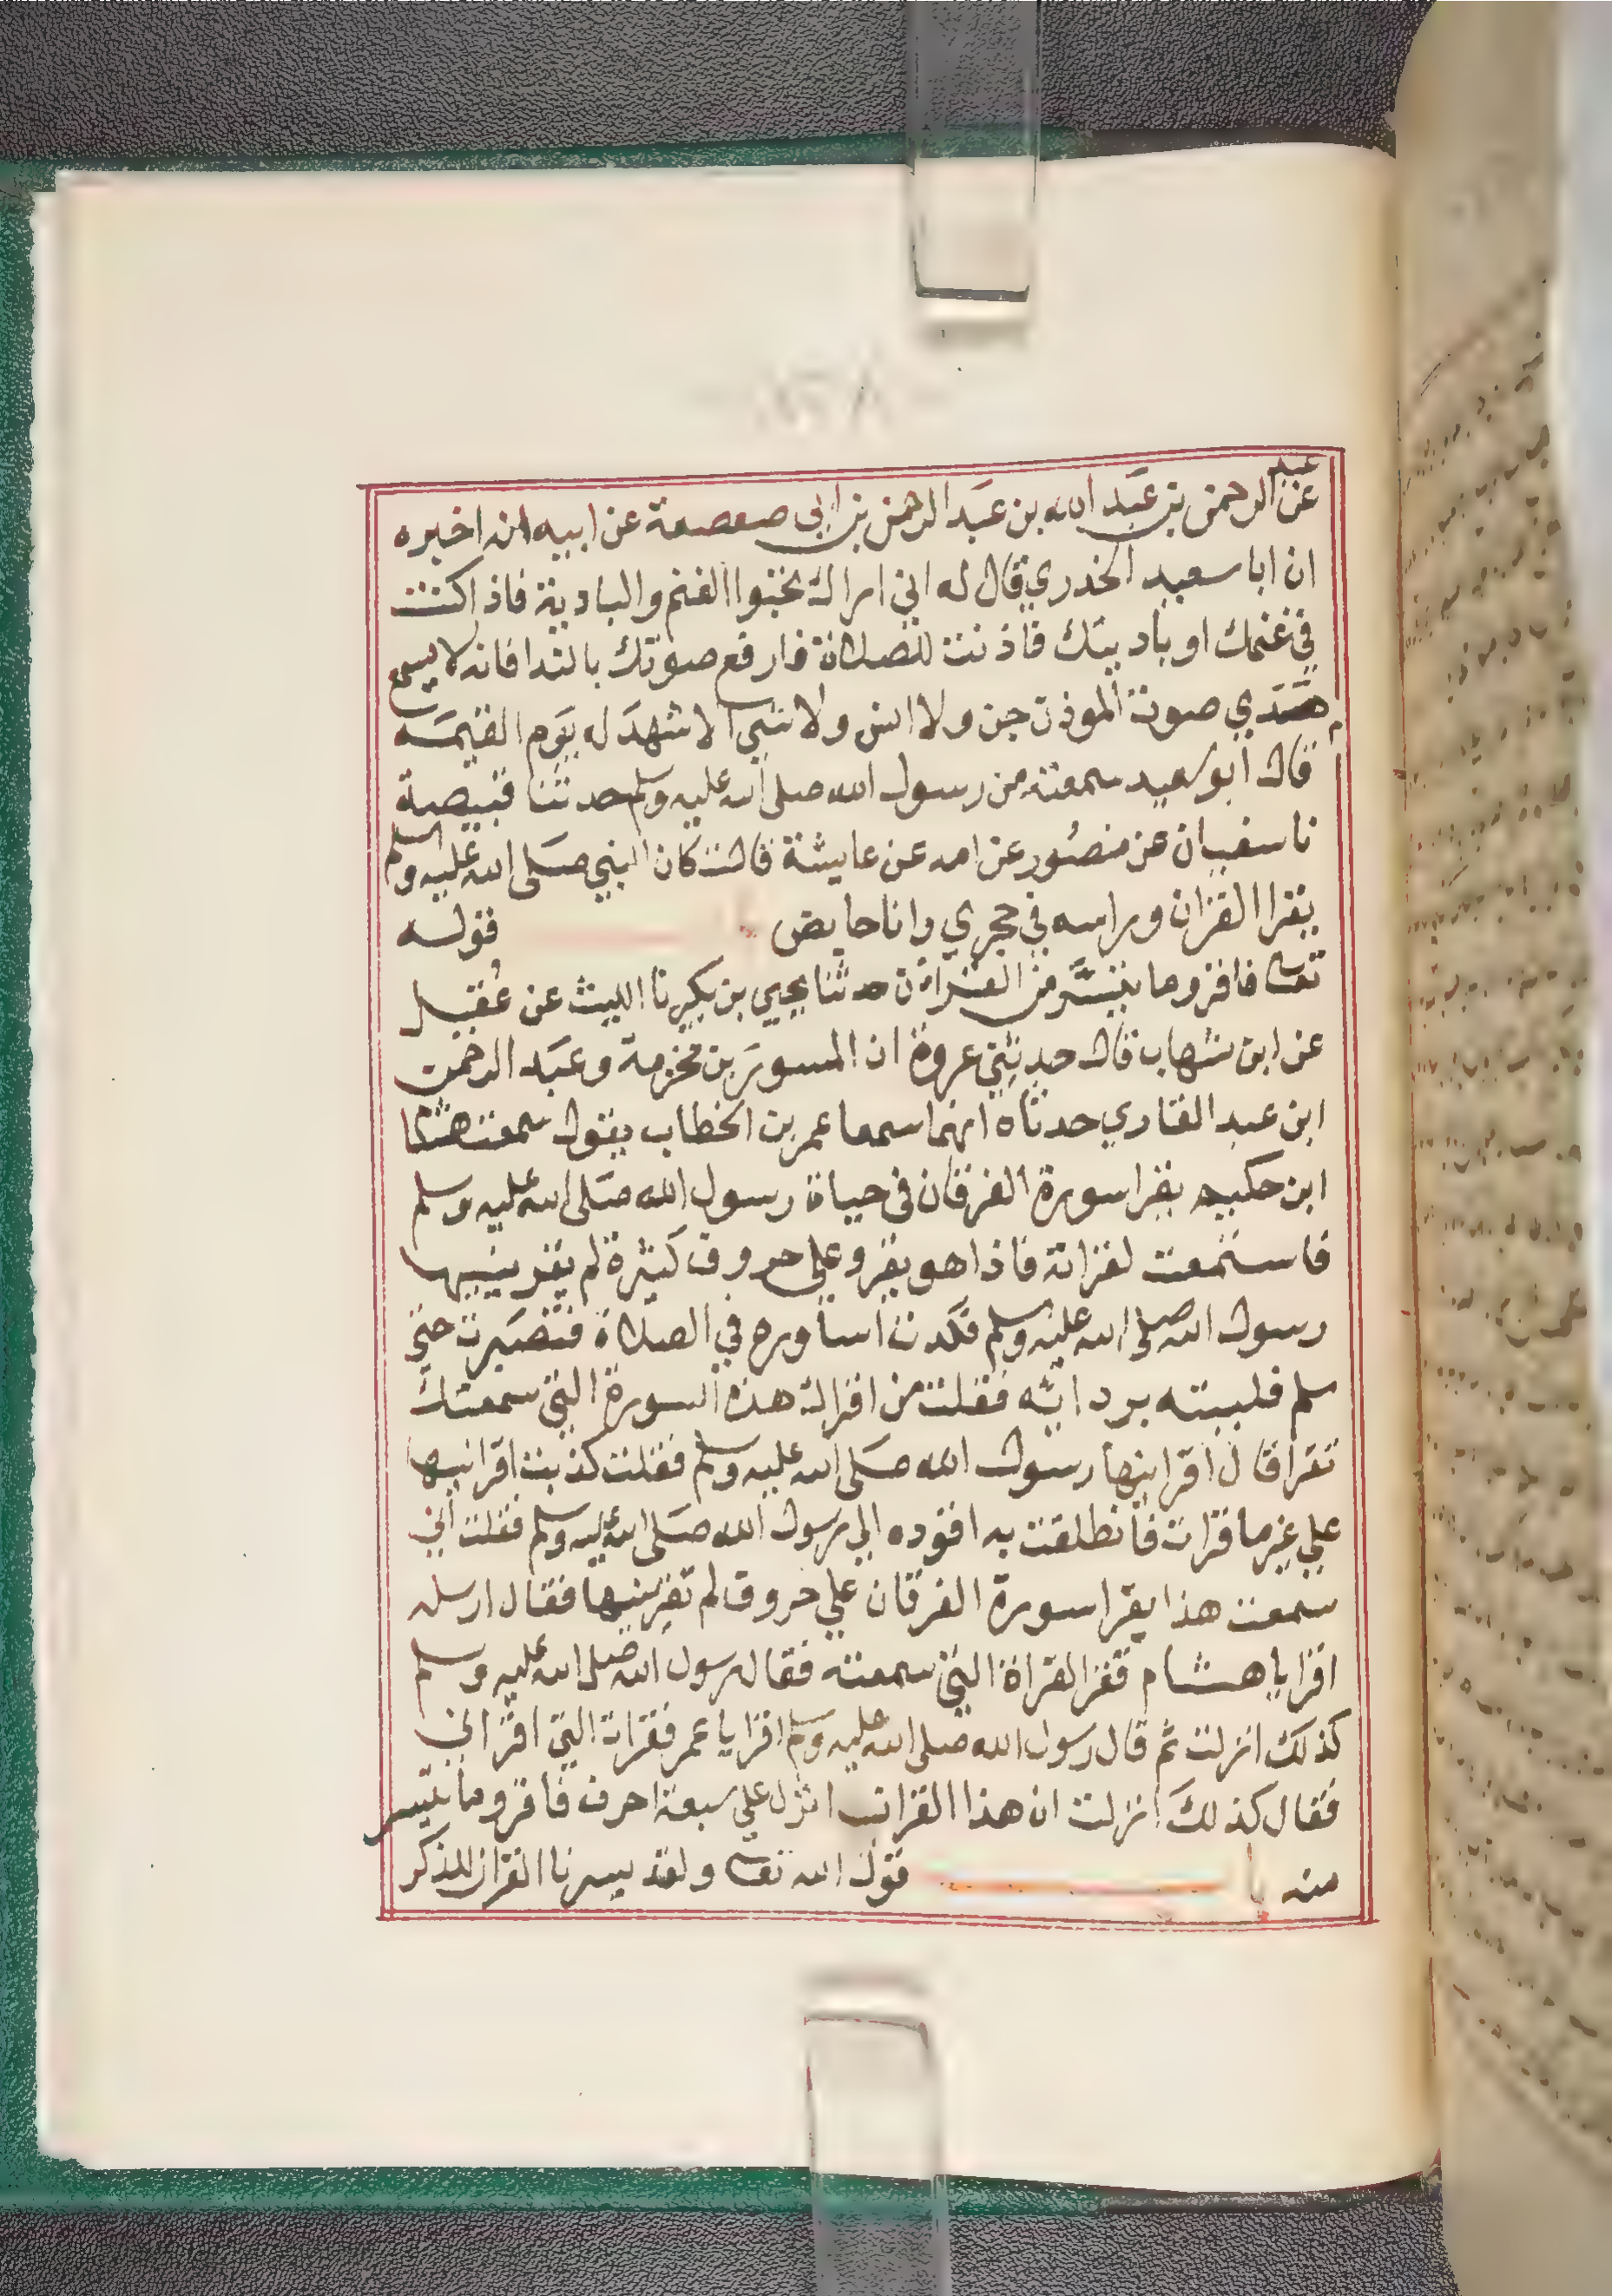 عن عبد الرحمن بن عبد الله بن عبد الرحمن بن ابي صعصعة عن ابيه انه اخبره
ان ابا سعيد الخدري قال له اني اراك تحبوا الغنم والبادية فاذا كنت
في غنمك او باديتك فاذنت للصلاة فارفع صوتك بالندا فانه لا يسمع
مدي صوت الموذن جن ولا انس ولا شي الا شهد له يوم القيمه
قال ابو سعيد سمعته من رسول الله صلى الله عليه وسلم حدثنا قبيصة
نا سفيان عن منصور عن امه عن عايشة قالت كان النبي صلى الله عليه وسلم
يقرا القران وراسه في حجري وانا حايض قوله
تعالى فاقروا ما تيسر من القران حدثنا يحيي بن بكير نا الليث عن عقيل
عن ابن شهاب قال حدثني عروة ان المسور بن مخرمة وعبد الرحمن
ابن عبد القاري حدثاه انهما سمعا عمر بن الخطاب يقول سمعت هشام
ابن حكيم يقرا سورة الفرقان في حياة رسول الله صلى الله عليه وسلم
فاستمعت لقراته فاذا هو يقرو علي حروف كثيرة لم يقرينيها
رسول الله صلى الله عليه وسلم فكدت اساوره في الصلاة فتصبرت حتي
سلم فلببته بردايه فقلت من اقراك هذه السورة التي سمعتك
تقرا قال اقرانيها رسول الله صلى الله عليه وسلم فقلت كذبت اقرانيها
علي غير ما قرات فانطلقت به اقوده الي رسول الله صلى الله عليه وسلم فقلت اني
سمعت هذا يقرا سورة الفرقان علي حروف لم تقرينيها فقال ارسله
اقرا يا هشام فقرا القراة التي سمعته فقال رسول الله صلى الله عليه وسلم
كذلك انزلت ثم قال رسول الله صلى الله عليه وسلم اقرا يا عمر فقرات التي اقراني
فقال كذلك انزلت ان هذا القران انزل علي سبعة احرف فاقروا ما تيسر
منه با قول الله تعالى ولقد يسرنا القران للذكر